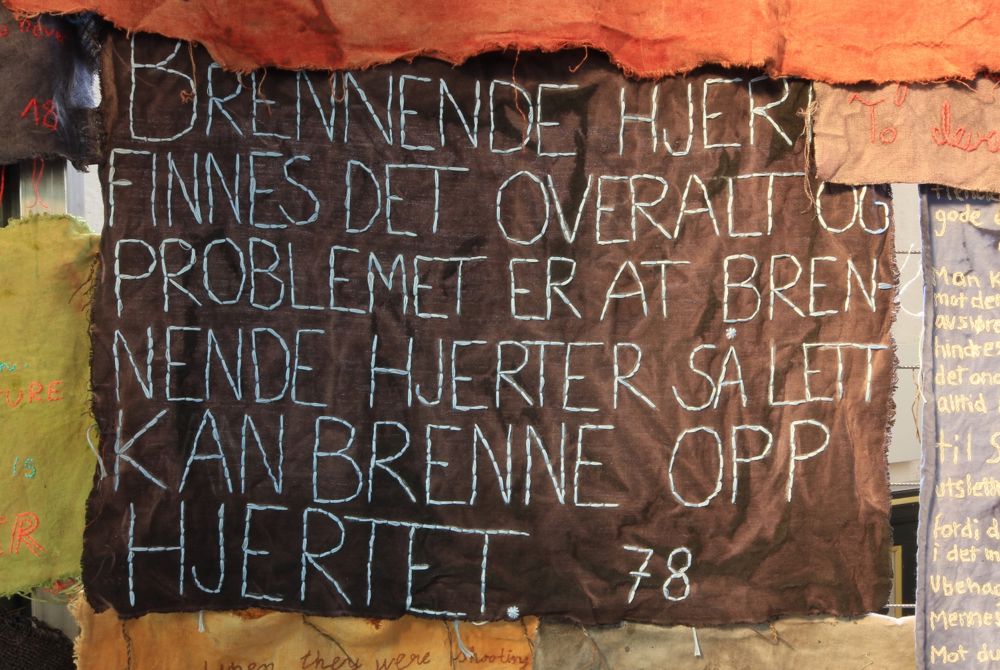 BRENNENDE HJER
FINNES DET OVERALT OG
PROBLEMET ER AT BREN
NENDE HJERTER SÅ LETT
KAN BRENNE OPP
HJERTET. 78
18
To
URE
IS
ER
gode
Man K
mot de
hindres
det ond
alltid
til S
utslett
fordi d
i det m
Ubehag
Mennes
Mot du
when they were shooting